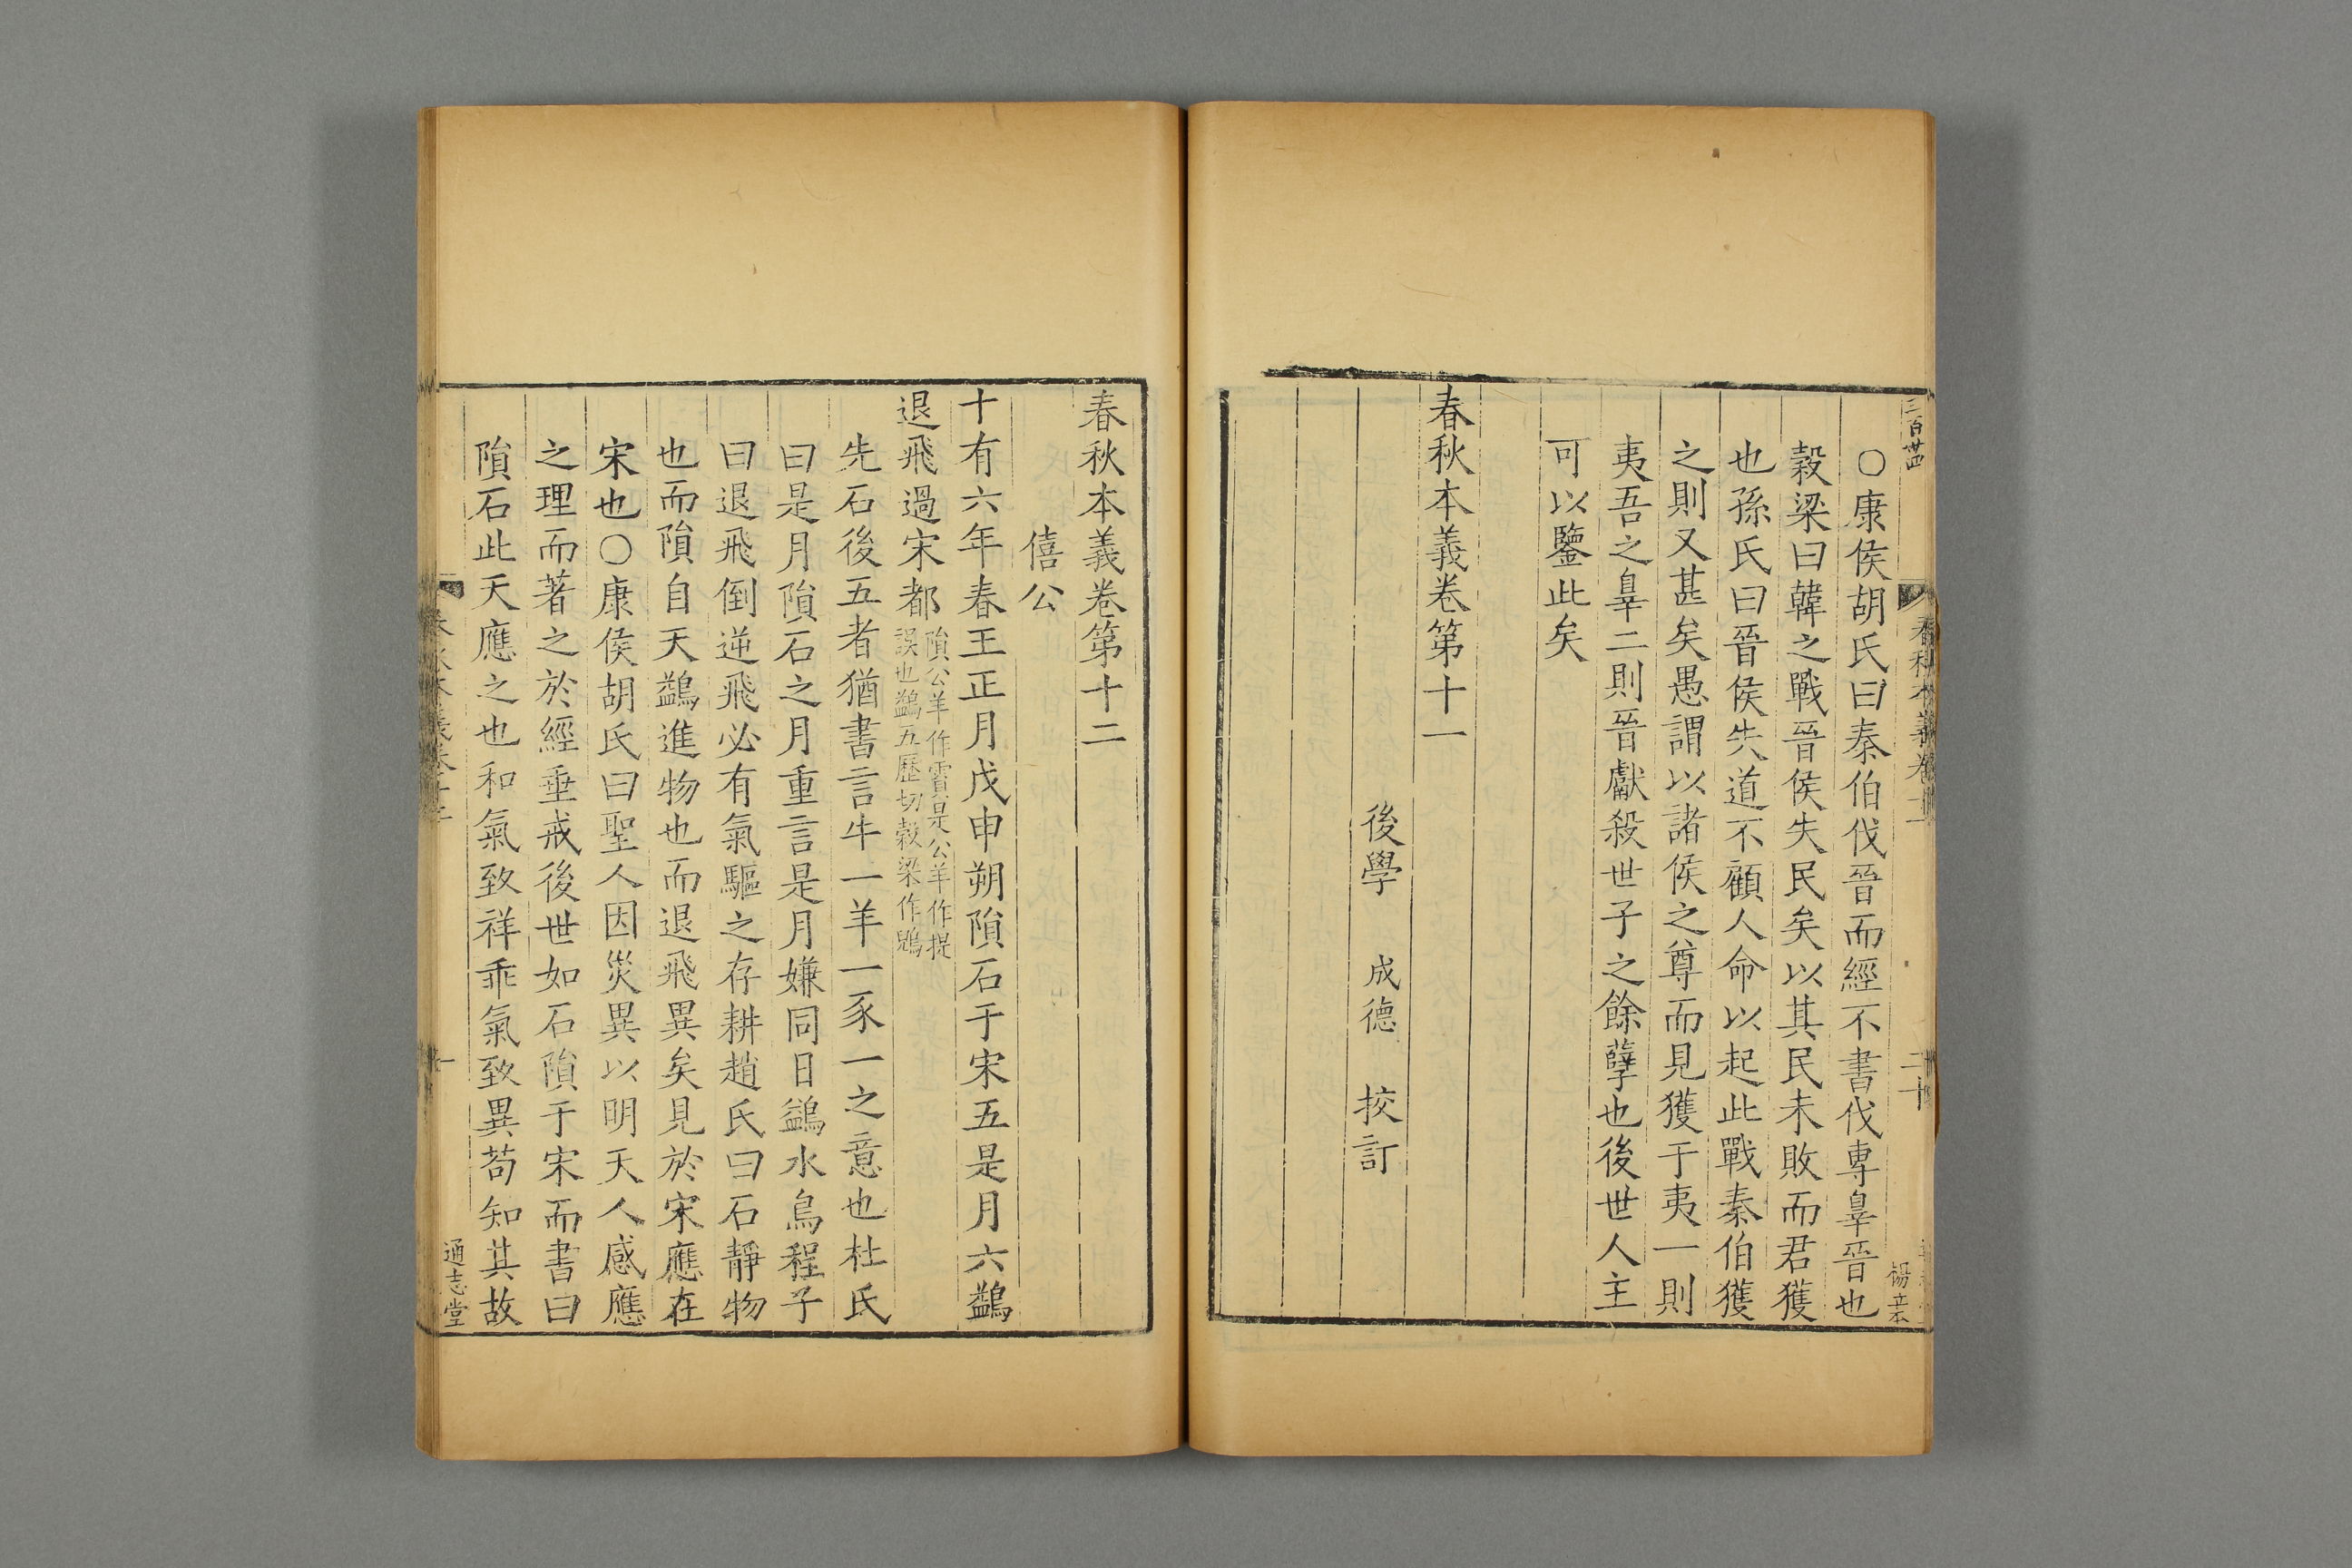 三百廿四
春秋本義卷十一
二十
楊立本
○康侯胡氏曰秦伯伐晉而經不書伐專辠晉也
穀梁曰韓之戰晉侯失民矣以其民未敗而君獲
也孫氏曰晉侯失道不顧人命以起此戰秦伯獲
之則又甚矣愚謂以諸侯之尊而見獲于夷一則
夷吾之辠二則晉獻殺世子之餘孽也後世人主
可以鑒此矣
春秋本義卷第十一
後學 成德 挍訂
春秋本義卷第十二
僖公
十有六年春王正月戊申朔隕石于宋五是月六鷁
退飛過宋都
隕公羊作霣是公羊作提
誤也鷁五歷切穀梁作鶂
先石後五者猶書言牛一羊一豕一之意也杜氏
曰是月隕石之月重言是月嫌同日鷁水鳥程子
曰退飛倒逆飛必有氣驅之存耕趙氏曰石靜物
也而隕自天鷁進物也而退飛異矣見於宋應在
宋也○康侯胡氏曰聖人因災異以明天人感應
之理而著之於經垂戒後世如石隕于宋而書曰
隕石此天應之也和氣致祥乖氣致異苟知其故
一
通志堂